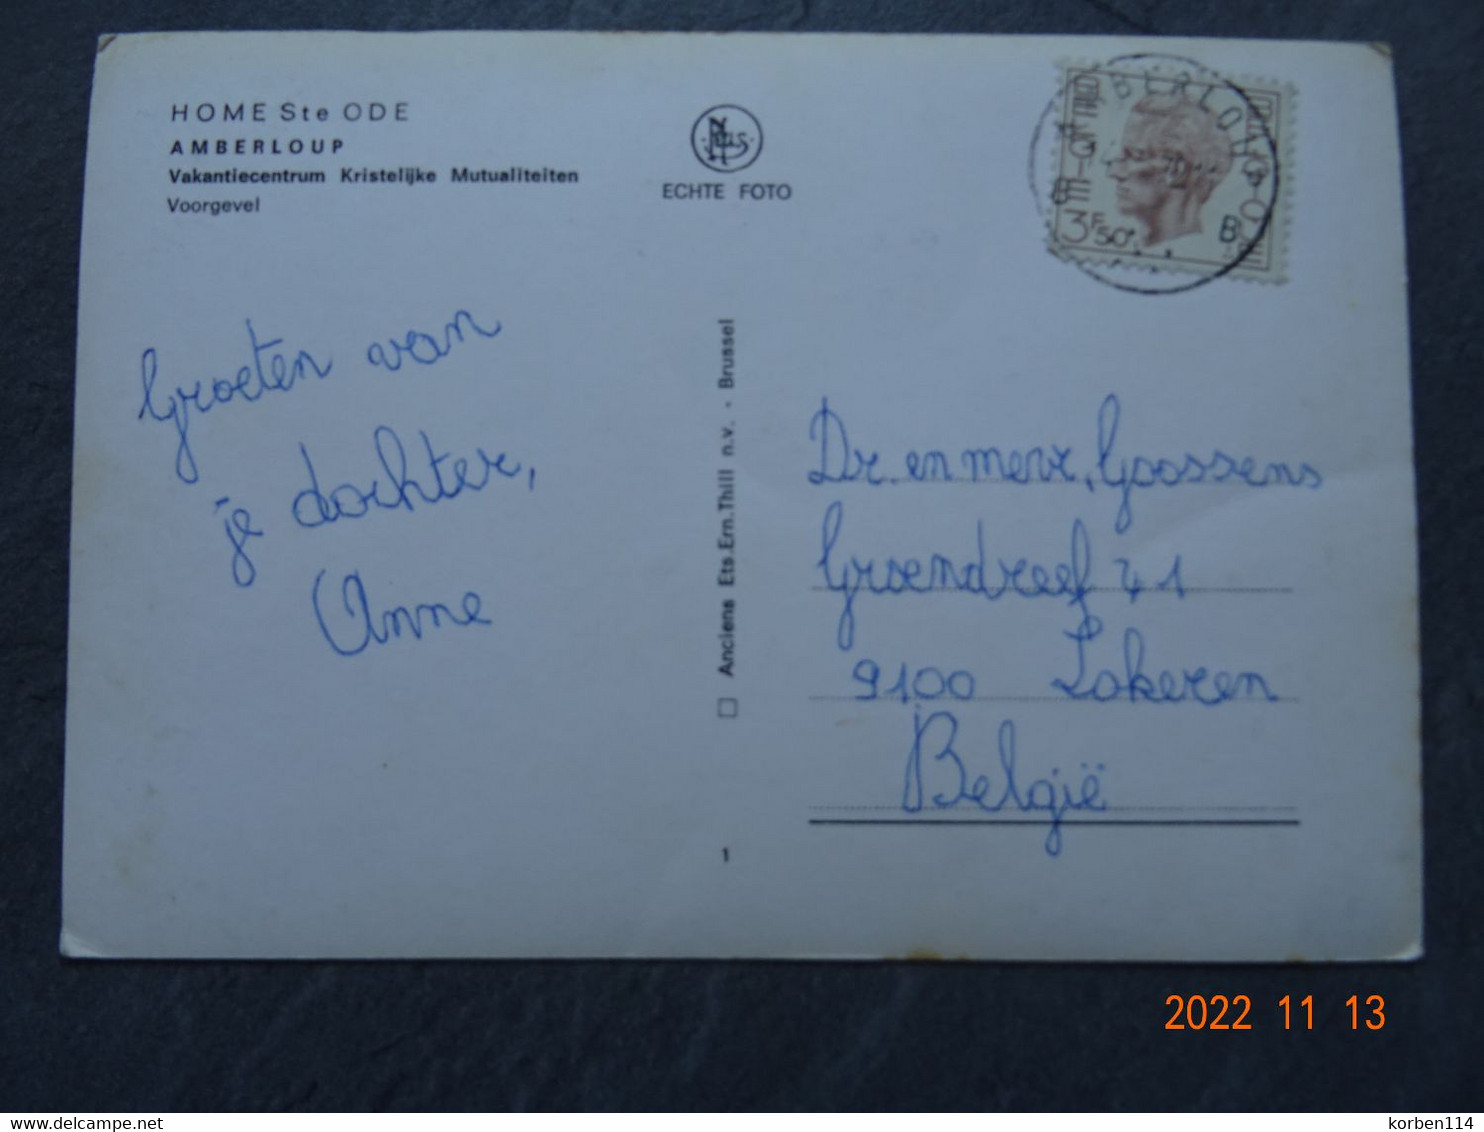 HOME Ste ODE
AMBERLOUP
Vakantiecentrum Kristelijke Mutualiteiten
Voorgevel
ECHTE FOTO
AMBERLOUP
BELGIE
3F50
B
Groeten van
je dochter,
Anne
Anciens Ets.Ern.Thill n.v. - Brussel
1
Dr. en mevr. Goossens
Groendreef 41
9100 Lokeren
België
2022 11 13
korben114